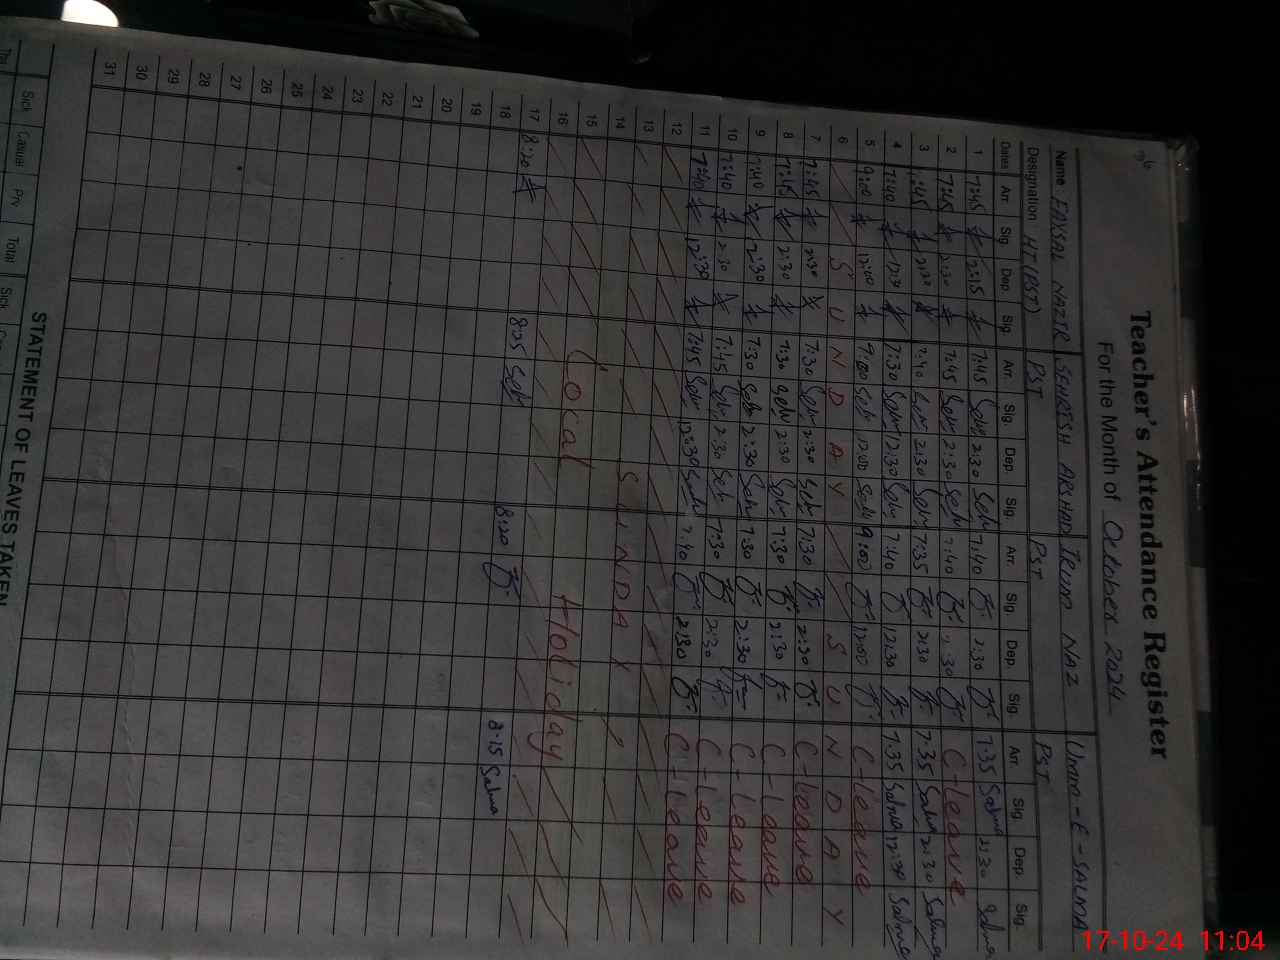 Teacher's Attendance Register
For the Month of October 2024
Name FAKSAL NAZIR SEHRISH ARSHAD IRUM NAZ Umm-E-SALMA
Designation HT(PST) PST PST PST
Dates Arr. Sig. Dep. Sig. Arr. Sig. Dep. Sig. Arr. Sig. Dep. Sig. Arr. Sig. Dep. Sig.
1 7:45 2:15 7:45 Seh 2:30 Seh 7:40 2:30 7:35 Salma 2:30 Salma
2 7:45 2:30 7:45 Seh 2:30 Seh 7:40 2:30 C-leave
3 7:45 2:30 7:40 Seh 2:30 Seh 7:35 2:30 7:35 Salma 2:30 Salma
4 7:40 12:30 7:30 Seh 12:30 Seh 7:40 12:30 7:35 Salma 12:30 Salma
5 9:00 12:00 9:00 Seh 12:00 Seh 9:00 12:00 C-leave
6 S U N D A Y S U N D A Y
7 7:45 2:30 7:30 Seh 2:30 Seh 7:30 2:30 C-leave
8 7:45 2:30 7:30 Seh 2:30 Seh 7:30 2:30 C-leave
9 7:40 2:30 7:30 Seh 2:30 Seh 7:30 2:30 C-leave
10 7:40 2:30 7:45 Seh 2:30 Seh 7:30 2:30 C-leave
11 7:40 12:30 7:45 Seh 12:30 Seh 7:40 2:30 C-leave
12
13 SUNDAY
14
15 Local Holiday
16
17 8:20 8:25 Seh 8:20 8:15 Salma
18
19
20
21
22
23
24
25
26
27
28
29
30
31
STATEMENT OF LEAVES TAKEN
Sick Casual Prv Total Sick
17-10-24 11:04